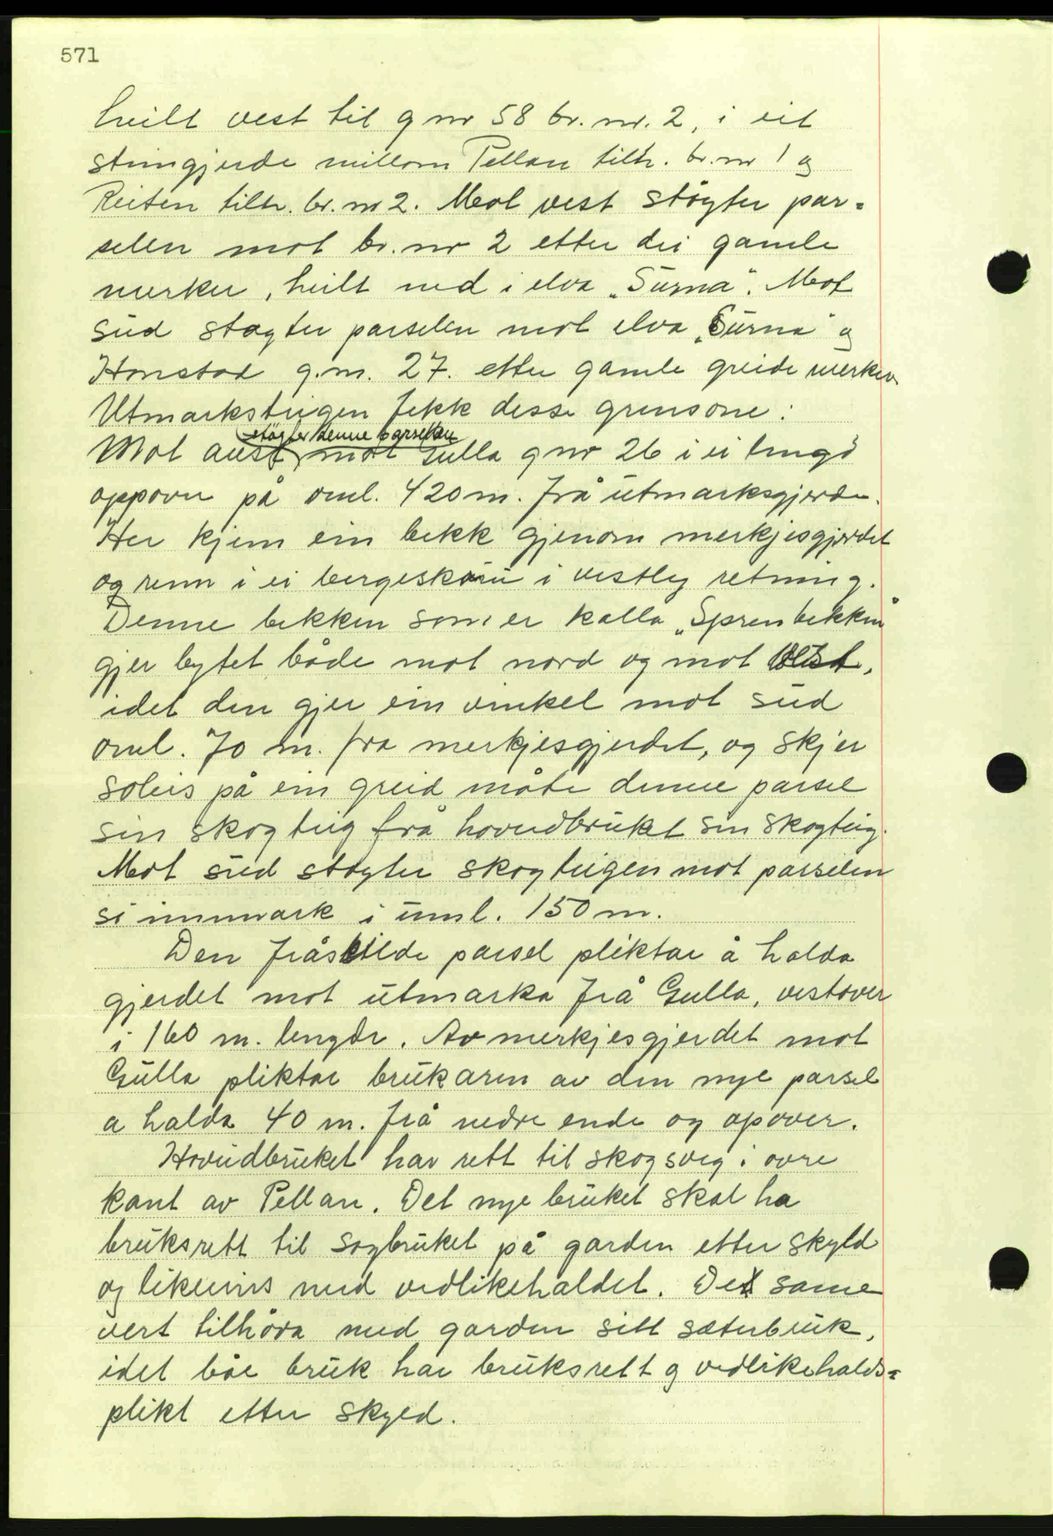 571
heilt vest til g nr 58 br. nr. 2, i eit
steingjerde millom Pellan tilh. br. nr 1 og
Reiten tilh. br. nr 2. Mot vest støyter par=
selen mot br. nr 2 etter dei gamle
merker, heilt ned i elva „Surna". Mot
sud støyter parselen mot elva „Surna" og
Honstad g.nr. 27. etter gamle greide merker
Utmarksteigen fekk desse grensone:
støyter denne parsellen
Mot aust mot Gulla g nr 26 i ei lengd
oppover på oml. 420 m. frå utmarksgjerde.
Her kjem ein bekk gjenom merkjesgjerdet
og renn i ei bergeskoru i vestleg retning.
Denne bekken som er kalla „Sprenbekken"
gjer bytet både mot nord og mot vest,
idet den gjer ein vinkel mot sud
oml. 70 m. fra merkjesgjerdet, og skjer
soleis på ein greid måte denne parsel
sin skogteig frå hovudbruket sin skogteig.
Mot sud støyter skogteigen mot parselen
si innmark i uml. 150 m.
Den fråskilde parsel pliktar å halda
gjerdet mot utmarka frå Gulla, vestover
i 160 m. lengde. Av merkjesgjerdet mot
Gulla pliktar brukaren av den nye parsel
a halda 40 m. frå nedre ende og opover.
Hovudbruket har rett til skogsveg i øvre
kant av Pellan. Det nye bruket skal ha
bruksrett til sagbruket på garden etter skyld
og likeeins med vedlikehaldet. Det same
vert tilhøva med garden sitt sæterbruk,
idet båe bruk har bruksrett og vedlikehalds=
plikt etter skyld.